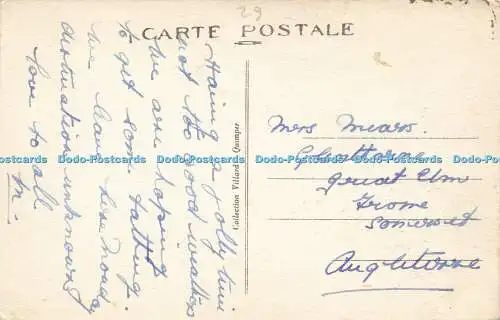 29
CARTE POSTALE
Having a jolly time
not too good weather
We are hoping
to get some bathing.
We leave here Monday
destination unknown
love to all
M.
Collection Villard, Quimper
Mrs Mears.
Great Elm
Frome
Somerset
Angleterre
Dodo-Postcards Dodo-Postcards Dodo-Postcards Dodo-Postcards Dodo-Postcards